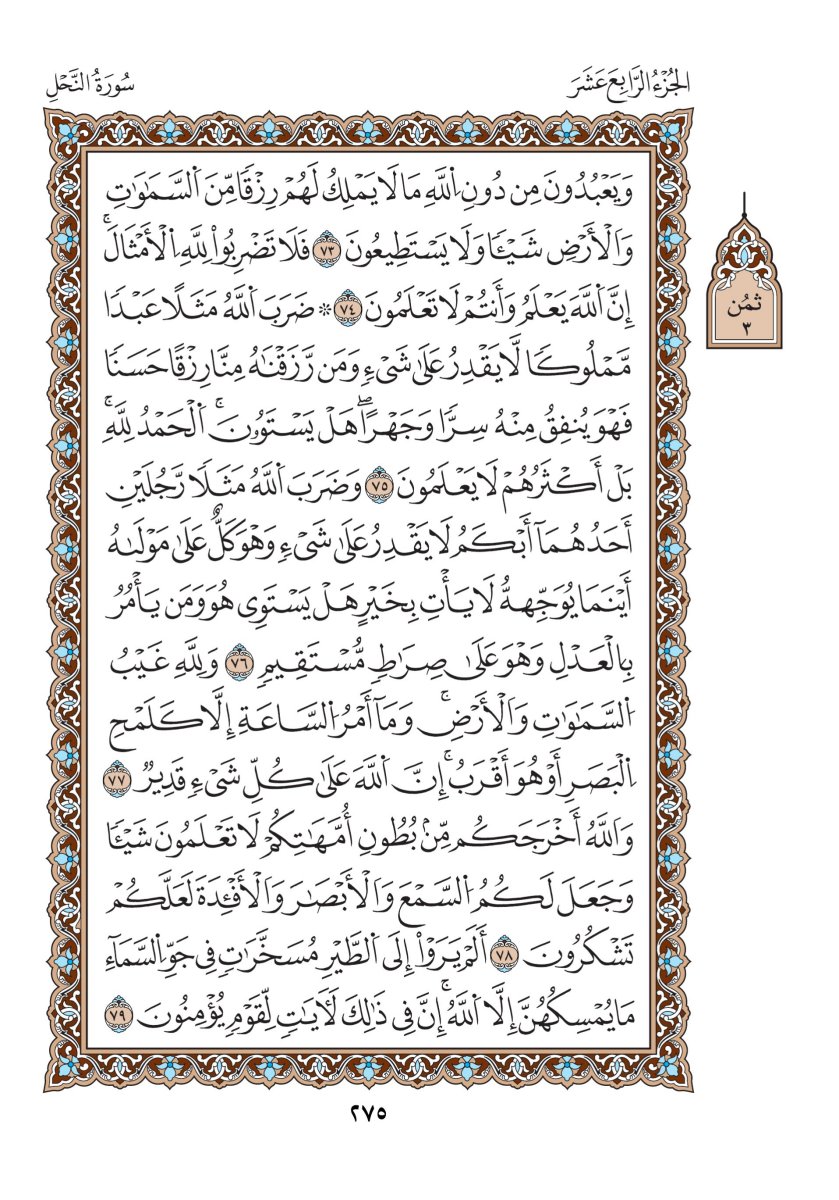 الجُزْءُ الرَّابِعَ عَشَرَ
سُورَةُ النَّحْلِ
وَيَعْبُدُونَ مِن دُونِ اِ۬للَّهِ مَا لَا يَمْلِكُ لَهُمْ رِزْقٗا مِّنَ اَ۬لسَّمَٰوَٰتِ
وَالْأَرْضِ شَيْـٔٗا وَلَا يَسْتَطِيعُونَ ٧٣ فَلَا تَضْرِبُواْ لِلَّهِ اِ۬لْأَمْثَالَۚ
إِنَّ اَ۬للَّهَ يَعْلَمُ وَأَنتُمْ لَا تَعْلَمُونَ ٧٤ ۞ ضَرَبَ اَ۬للَّهُ مَثَلًا عَبْدٗا
مَّمْلُوكٗا لَّا يَقْدِرُ عَلَىٰ شَيْءٖ وَمَن رَّزَقْنَٰهُ مِنَّا رِزْقًا حَسَنٗا
فَهْوَ يُنفِقُ مِنْهُ سِرّٗا وَجَهْرًاۖ هَلْ يَسْتَوُۥنَۚ اَ۬لْحَمْدُ لِلَّهِۚ
بَلْ أَكْثَرُهُمْ لَا يَعْلَمُونَ ٧٥ وَضَرَبَ اَ۬للَّهُ مَثَلٗا رَّجُلَيْنِ
أَحَدُهُمَآ أَبْكَمُ لَا يَقْدِرُ عَلَىٰ شَيْءٖ وَهْوَ كَلٌّ عَلَىٰ مَوْلَىٰهُ
أَيْنَمَا يُوَجِّههُّ لَا يَأْتِ بِخَيْرٍ هَلْ يَسْتَوِي هُوَ وَمَن يَأْمُرُ
بِالْعَدْلِ وَهْوَ عَلَىٰ صِرَٰطٖ مُّسْتَقِيمٖ ٧٦ وَلِلَّهِ غَيْبُ
اُ۬لسَّمَٰوَٰتِ وَالْأَرْضِۚ وَمَآ أَمْرُ اُ۬لسَّاعَةِ إِلَّا كَلَمْحِ
اِ۬لْبَصَرِ أَوْ هُوَ أَقْرَبُۚ إِنَّ اَ۬للَّهَ عَلَىٰ كُلِّ شَيْءٖ قَدِيرٞ ٧٧
وَاَللَّهُ أَخْرَجَكُم مِّنۢ بُطُونِ أُمَّهَٰتِكُمْ لَا تَعْلَمُونَ شَيْـٔٗا
وَجَعَلَ لَكُمُ اُ۬لسَّمْعَ وَالْأَبْصَٰرَ وَالْأَفْـِٔدَةَ لَعَلَّكُمْ
تَشْكُرُونَ ٧٨ أَلَمْ يَرَوْاْ إِلَى اَ۬لطَّيْرِ مُسَخَّرَٰتٖ فِي جَوِّ اِ۬لسَّمَآءِ
مَا يُمْسِكُهُنَّ إِلَّا اَ۬للَّهُۚ إِنَّ فِي ذَٰلِكَ لَأٓيَٰتٖ لِّقَوْمٖ يُؤْمِنُونَ ٧٩
ثُمُن
٣
٢٧٥